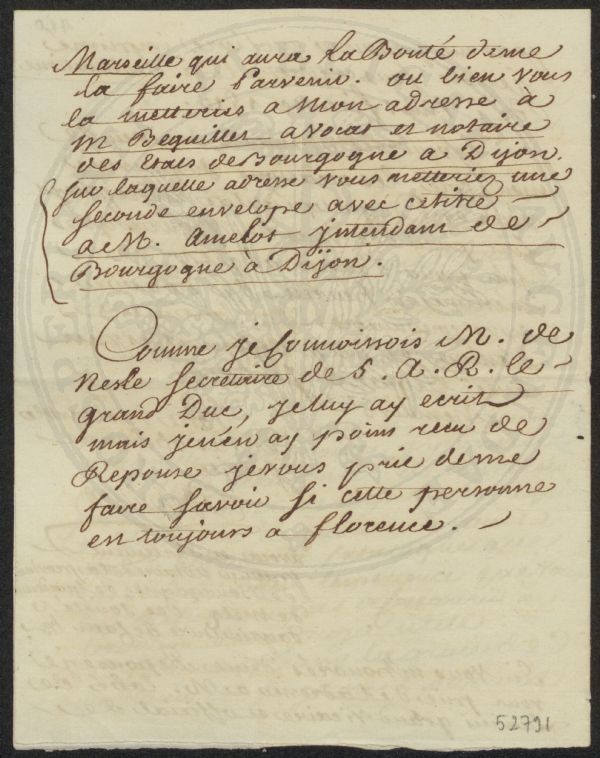 Marseille qui aura la Bonté de me
la faire Parvenir. ou bien vous
la metteriés a Mon adresse à
M Beguillet avocat et notaire
des Etats de Bourgogne a Dijon.
sur laquelle adresse vous metteriez une
seconde envelope avec ce titre
a M. Amelot jntendant de
Bourgogne à Dijon.
Comme je Connoissois M. de
Nesle secretaire de S. A. R. le
grand Duc, je luy ay ecrit
mais je n'en ay point recu de
Reponse je vous prie de me
faire savoir si cette personne
est toujours a florence.
52791